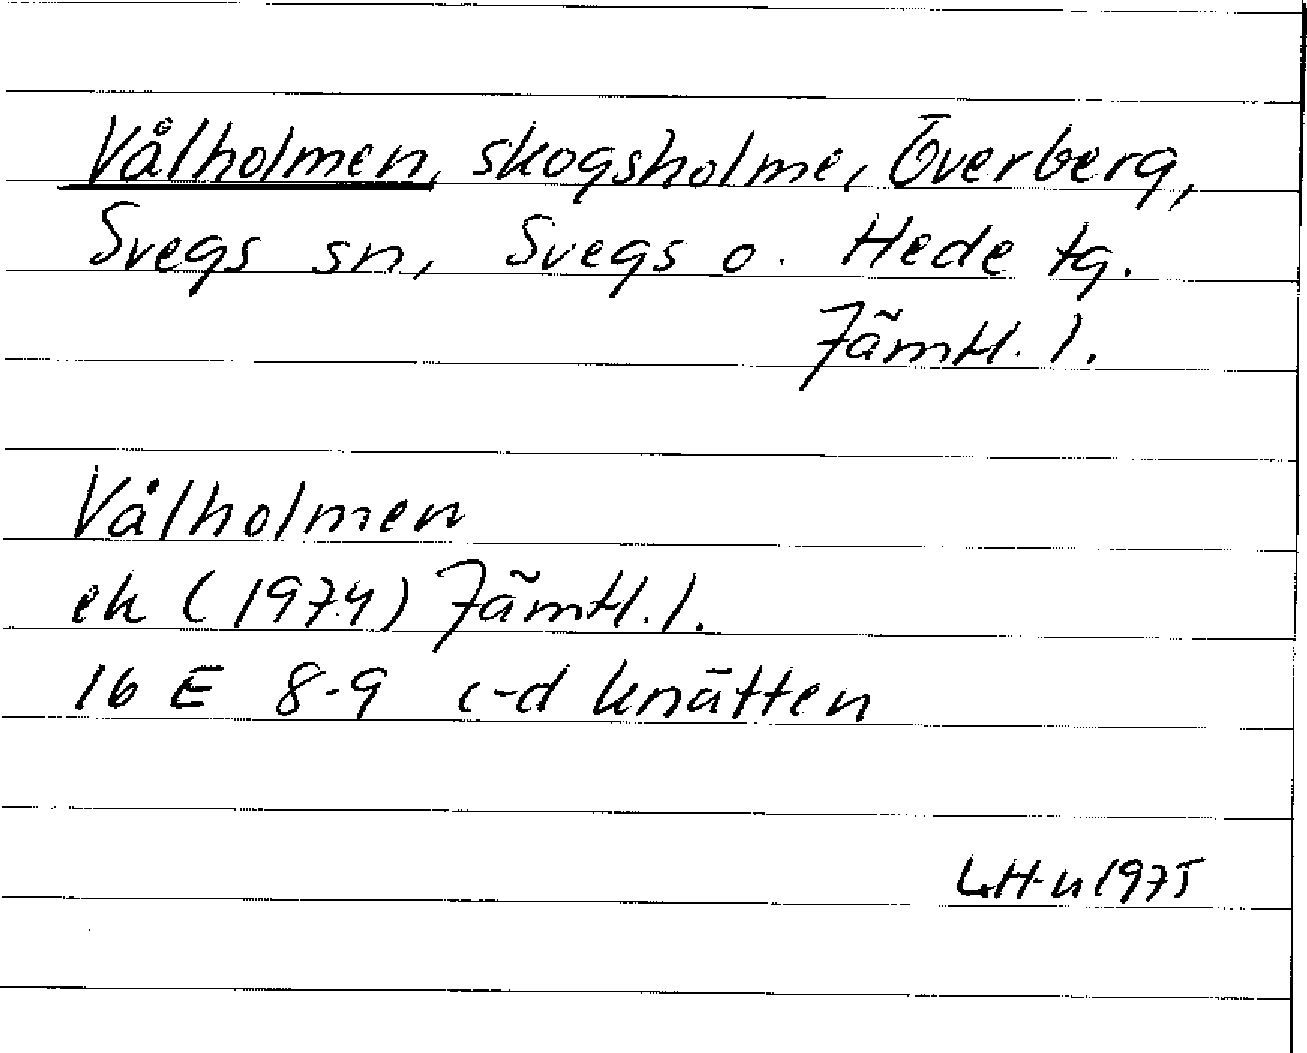 Vålholmen, skogsholme, Överberg,
Svegs sn, Svegs o. Hede tg.
Jämtl. l.
Vålholmen
ek (1974) Jämtl. l.
16 E 8-9 c-d Knätten
LH-n 1975